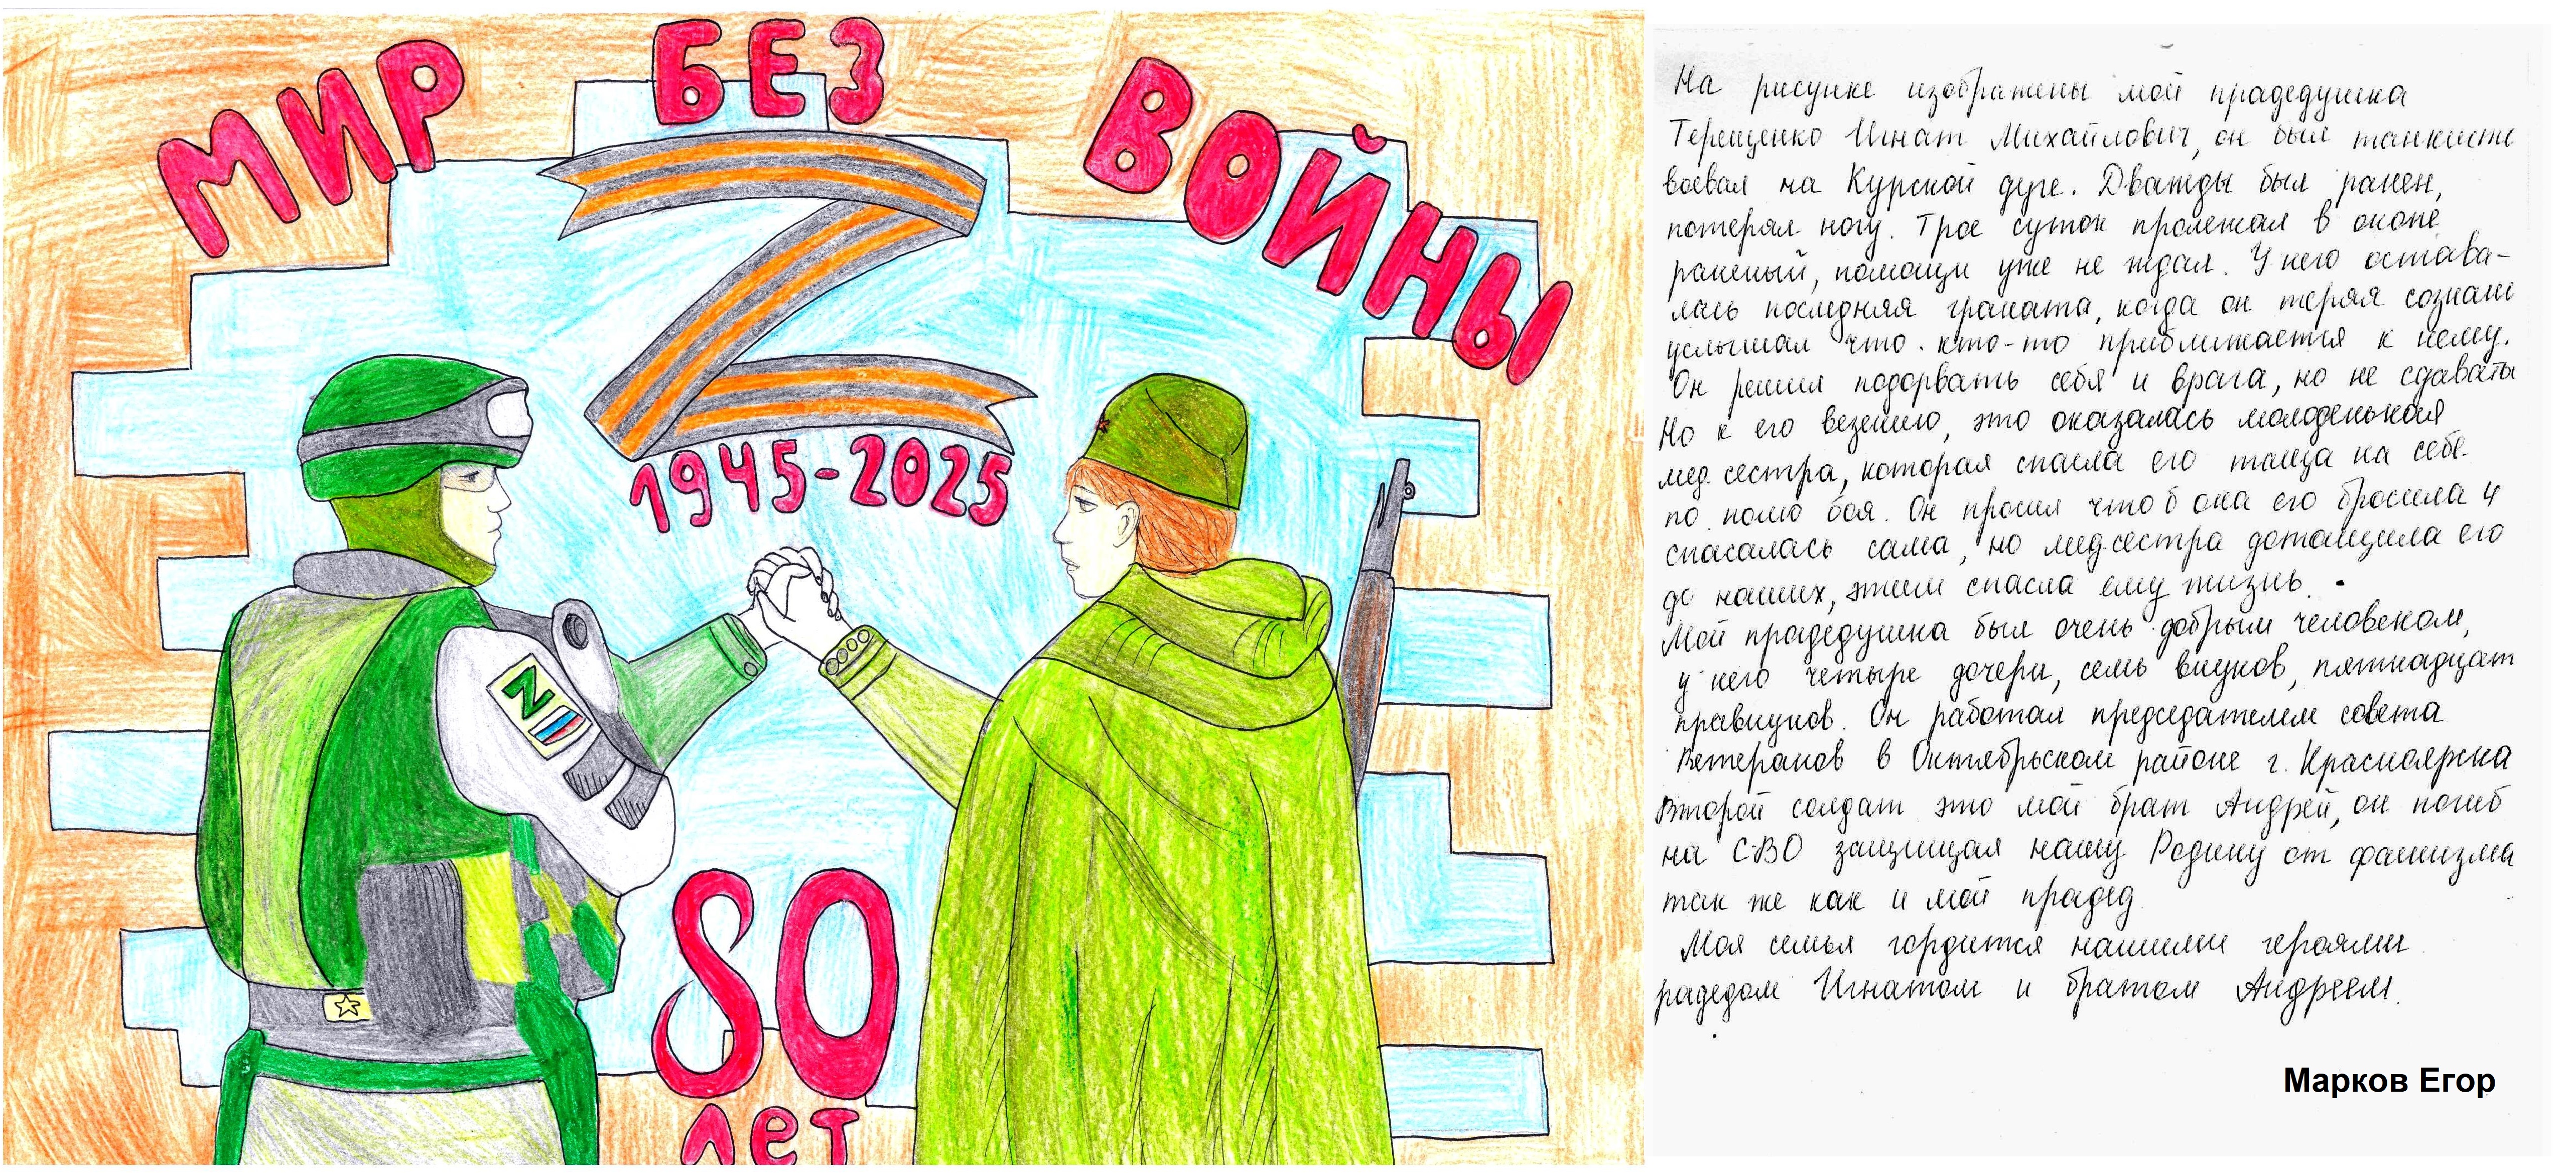 МИР БЕЗ ВОЙНЫ
1945-2025
80
лет
На рисунке изображены мой прадедушка
Терещенко Игнат Михайлович, он был танкисто
воевал на Курской дуге. Дважды был ранен,
потерял ногу. Трое суток пролежал в окопе
раненый, помощи уже не ждал. У него остава-
лась последняя граната, когда он теряя сознани
услышал что кто-то приближается к нему.
Он решил подорвать себя и врага, но не сдавать
Но к его везению, это оказалась молоденькая
мед. сестра, которая спасла его таща на себе
по полю боя. Он просил чтоб она его бросила и
спасалась сама, но медсестра дотащила его
до наших, этим спасла ему жизнь.
Мой прадедушка был очень добрым человеком,
у него четыре дочери, семь внуков, пятнадцат
правнуков. Он работал председателем совета
Ветеранов в Октябрьском районе г. Красноярска
Второй солдат это мой брат Андрей, он погиб
на СВО защищая нашу Родину от фашизма
так же как и мой прадед
Моя семья гордится нашими героями
радедом Игнатом и братом Андреем.
Марков Егор
Z